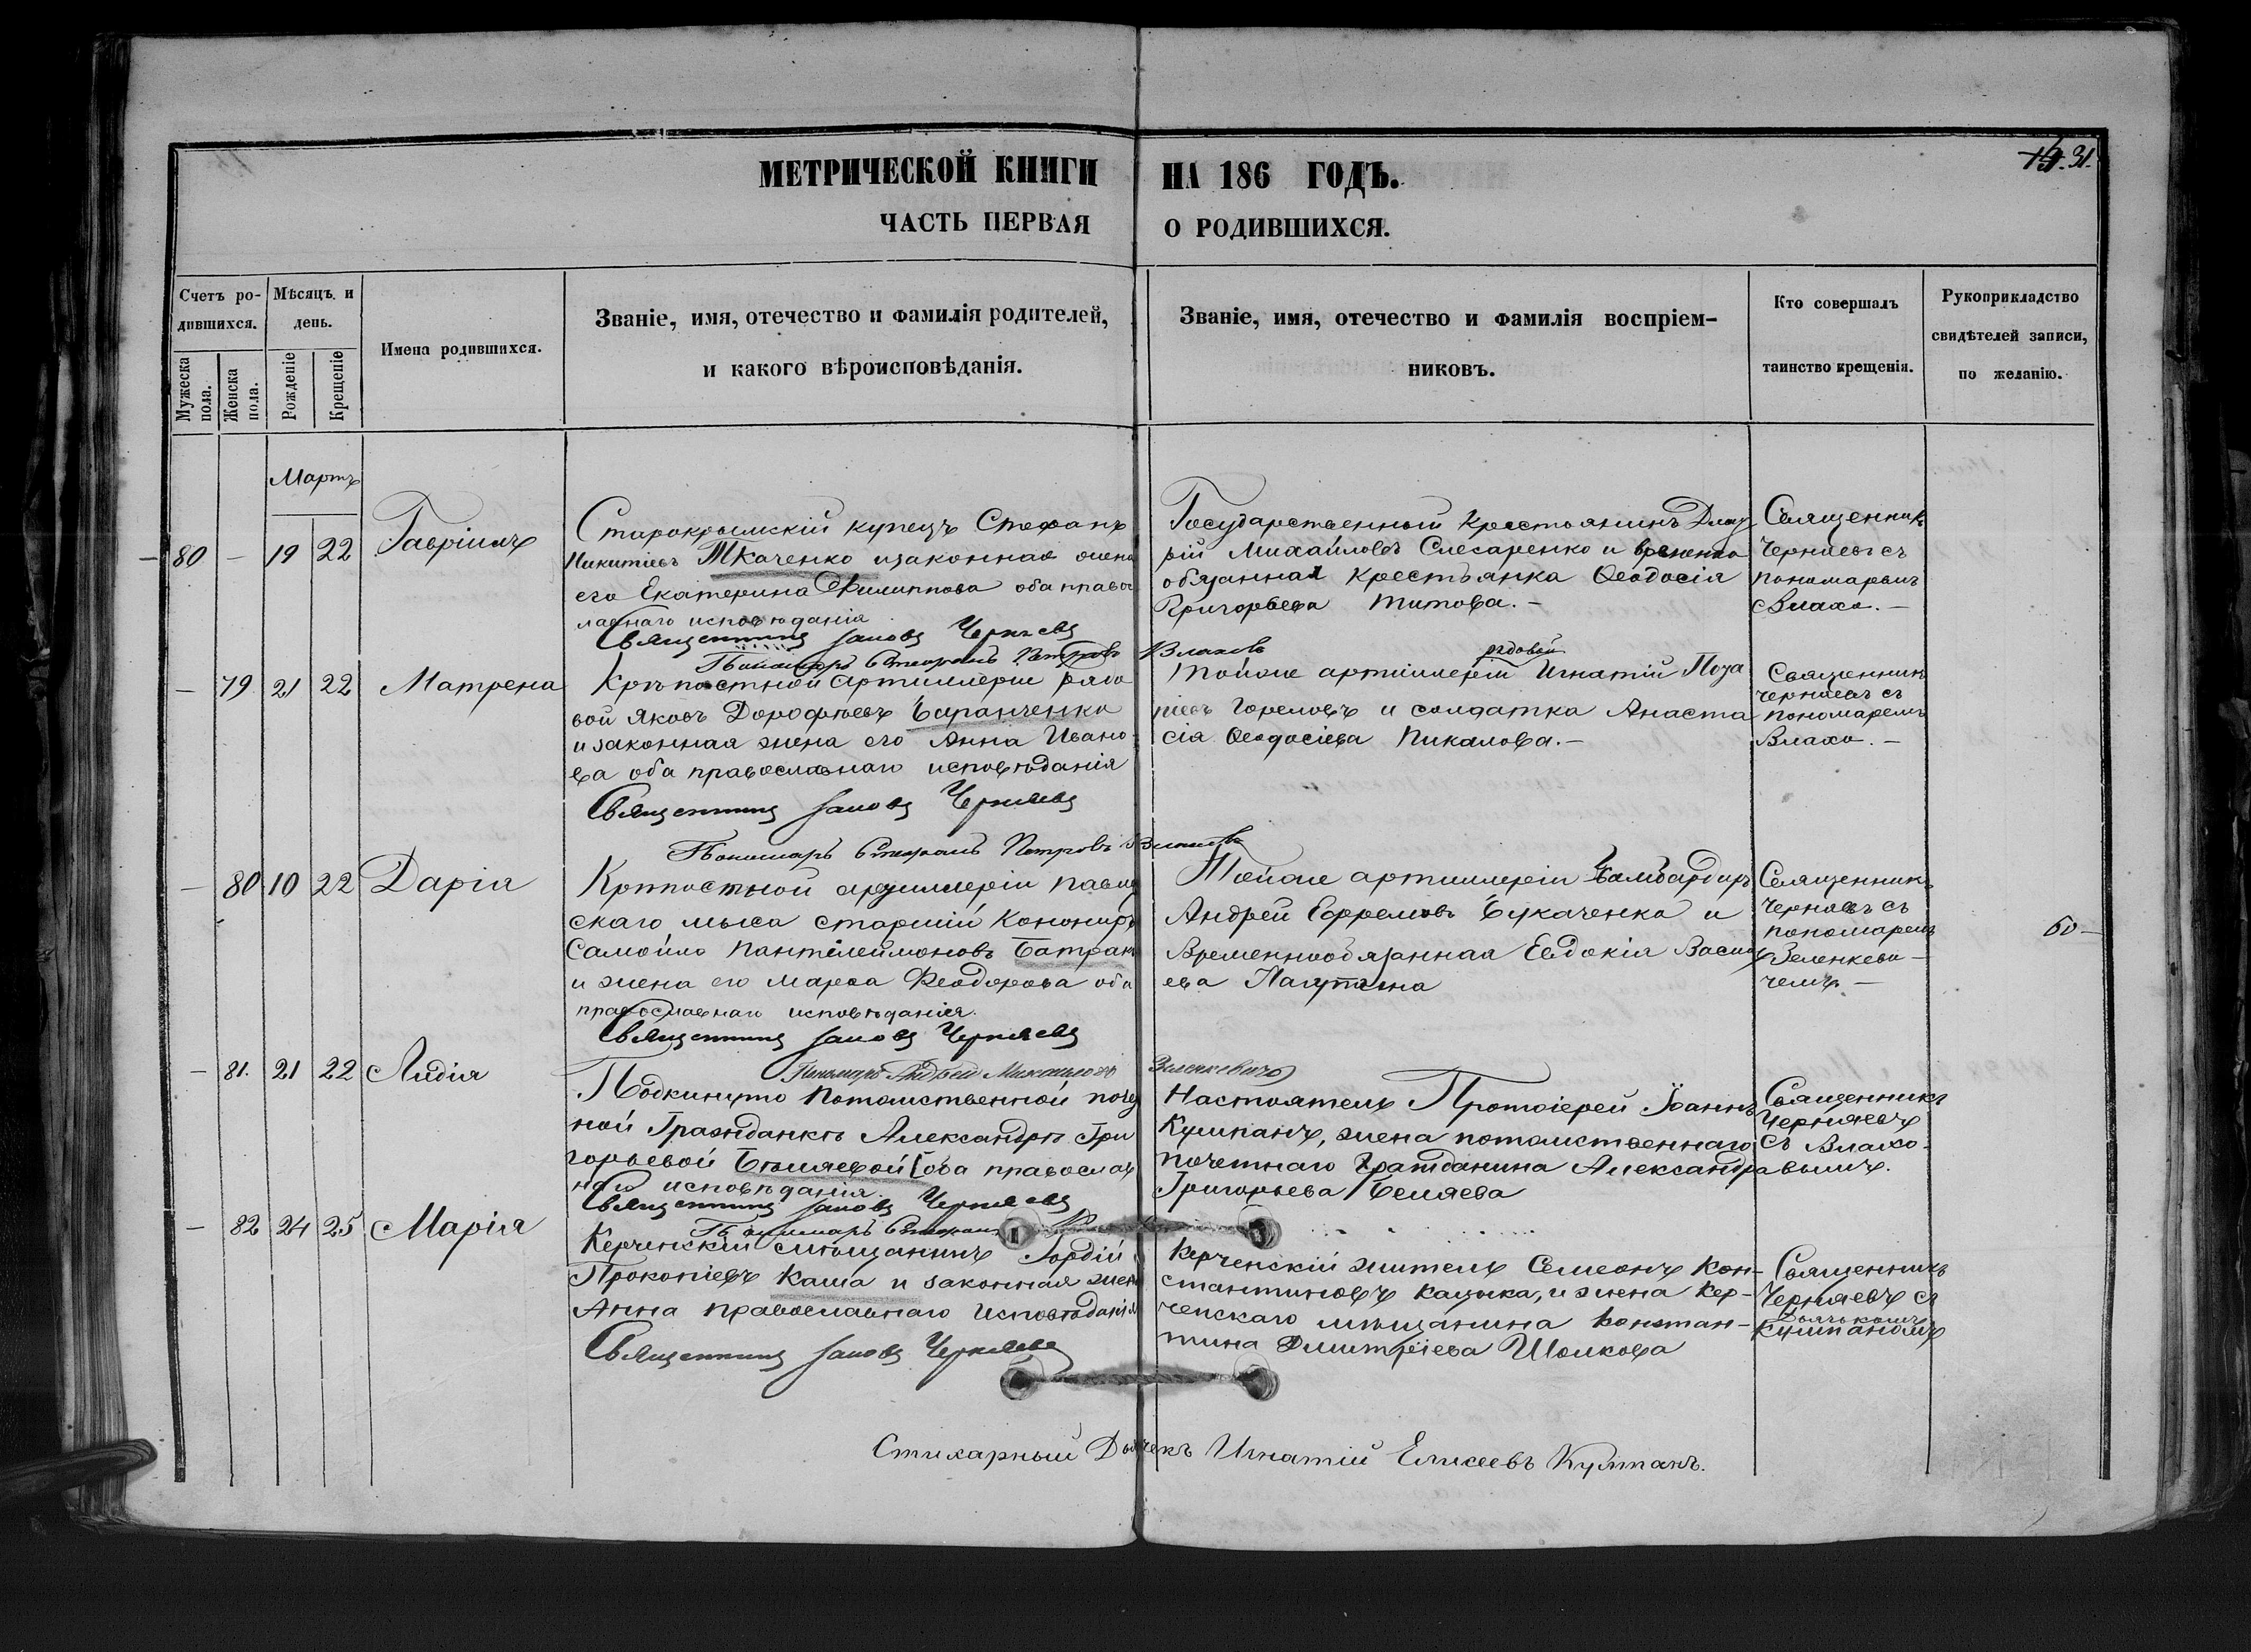 15. 31.
МЕТРИЧЕСКОЙ КНИГИ НА 186 ГОДЪ.
ЧАСТЬ ПЕРВАЯ О РОДИВШИХСЯ.
Счетъ ро-
дившихся.
Мужеска
пола.
Женска
пола.
Мѣсяцъ и
день.
Рожденіе
Крещеніе
Имена родившихся.
Званіе, имя, отечество и фамилія родителей,
и какого вѣроисповѣданія.
Званіе, имя, отечество и фамилія воспріем-
никовъ.
Кто совершалъ
таинство крещенія.
Рукоприкладство
свидѣтелей записи,
по желанію.
Мартъ
80 – 19 22 Гавріилъ
Старокрымскій купецъ Стефанъ
Никитіевъ Ткаченко изаконная жена
его Екатерина Филиппова оба право
славнаго исповѣданія
Священникъ Іаковъ Черняевъ
Пономарь Стефанъ Петровъ Влаховъ
Государственный Крестьянинъ Дмит
рій Михайловъ Слесаренко и временно
обязанная Крестьянка Ѳеодосія
Григорьева Титова. –
Священникъ
Черняевъ съ
пономаремъ
Влахо. –
– 79 21 22 Матрена
Крѣпостной Артиллеріи рядо
вой Яковъ Дорофѣевъ Баранченко
и законная жена его Анна Ивано
ва оба православнаго исповѣданія
Священникъ Іаковъ Черняевъ
Пономарь Стефанъ Петровъ Влаховъ
рядовой
Тойже артиллеріи Игнатій Поза
ріевъ Гореловъ и солдатка Анаста
сія Ѳеодосіева Пикалова. –
Священникъ
Черняевъ съ
пономаремъ
Влахо. –
– 80 10 22 Дарія
Крѣпостной артиллеріи Павлов
скаго мыса старшій Конониръ
Самойло Пантелеймоновъ Батракъ
и жена его Марѳа Феодорова оба
православнаго исповѣданія.
Священникъ Іаковъ Черняевъ
Пономарь Андрей Михайловъ Зеленкевичъ
Тойже артиллеріи Бамбардиръ
Андрей Ефремовъ Букаченко и
Временнообязанная Евдокія Василь
ева Лагутина
Священникъ
Черняевъ съ
пономаремъ
Зеленкеви–
чемъ –
60 –
– 81. 21 22 Лидія
Подкинуто Потомственной почет
ной Гражданкѣ Александрѣ Гри
горьевой Бѣляевой оба православ
наго исповѣданія.
Священникъ Іаковъ Черняевъ
Пономарь Стефанъ
Настоятель Протоіерей Іоаннъ
Кумпанъ, жена потомственнаго
почетнаго Гражданина Александра
Григорьева Беляева
Священникъ
Черняевъ
съ Влахо-
вымъ.
– 82 24 25 Марія
Керченскій мѣщанинъ Гордій
Прокопіевъ Каша и законная жена
Анна православнаго исповѣданія
Священникъ Іаковъ Черняевъ
Керченскій житель Семеонъ Кон-
стантиновъ Кацыка, и жена Кер-
ченскаго мѣщанина Констан-
тина Дмитріева Шолкова
Священникъ
Черняевъ съ
Дьячкомъ
Кумпаномъ
Стихарный Дьячекъ Игнатій Елисеевъ Кумпанъ.